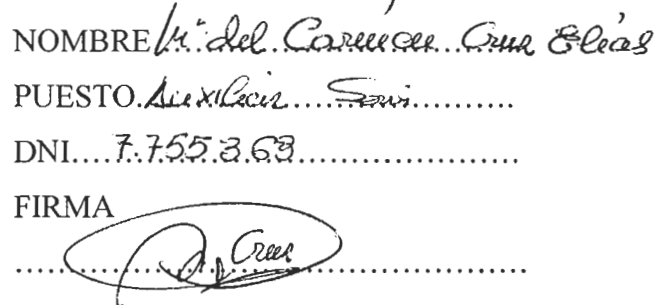 NOMBRE Mª del Carmen Cruz Elías
PUESTO. Auxiliar..... Servi..........
DNI....7.755.363......................
FIRMA
Cruz